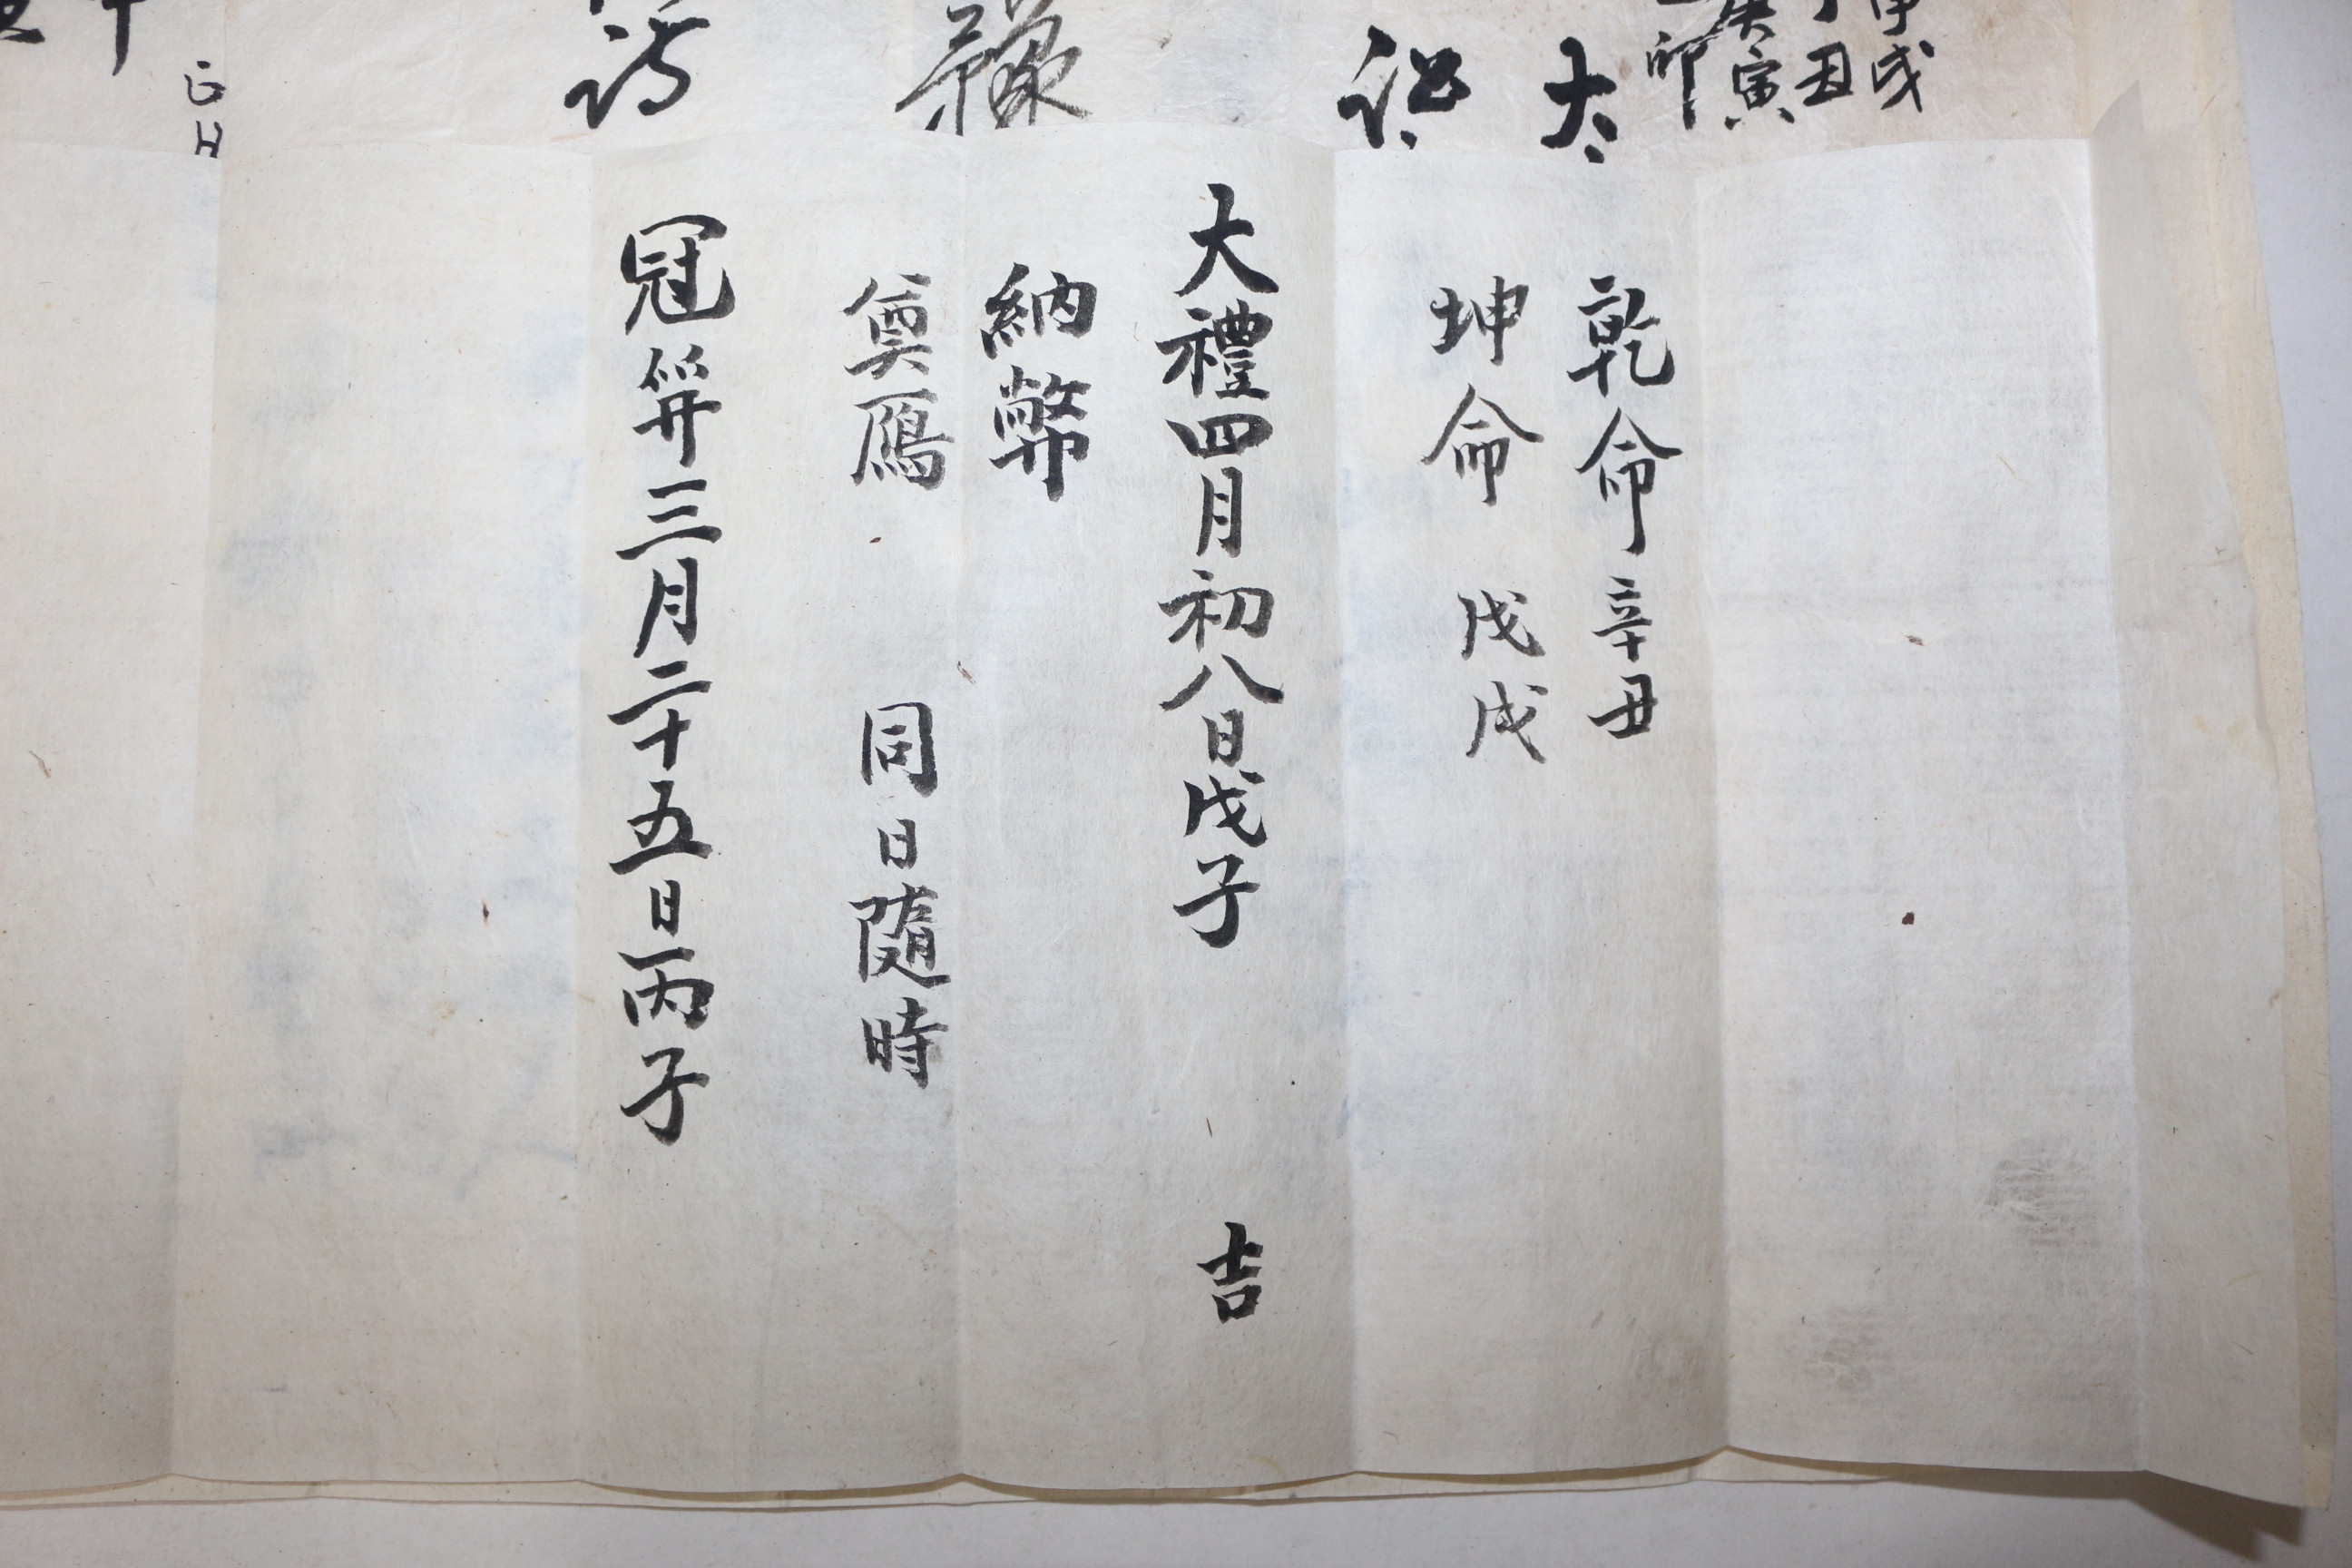 戌
丑
庚寅
卯
太
祿
乾命 辛丑
坤命 戊戌
大禮四月初八日戊子 吉
納幣
奠鴈 同日隨時
冠笄三月二十五日丙子